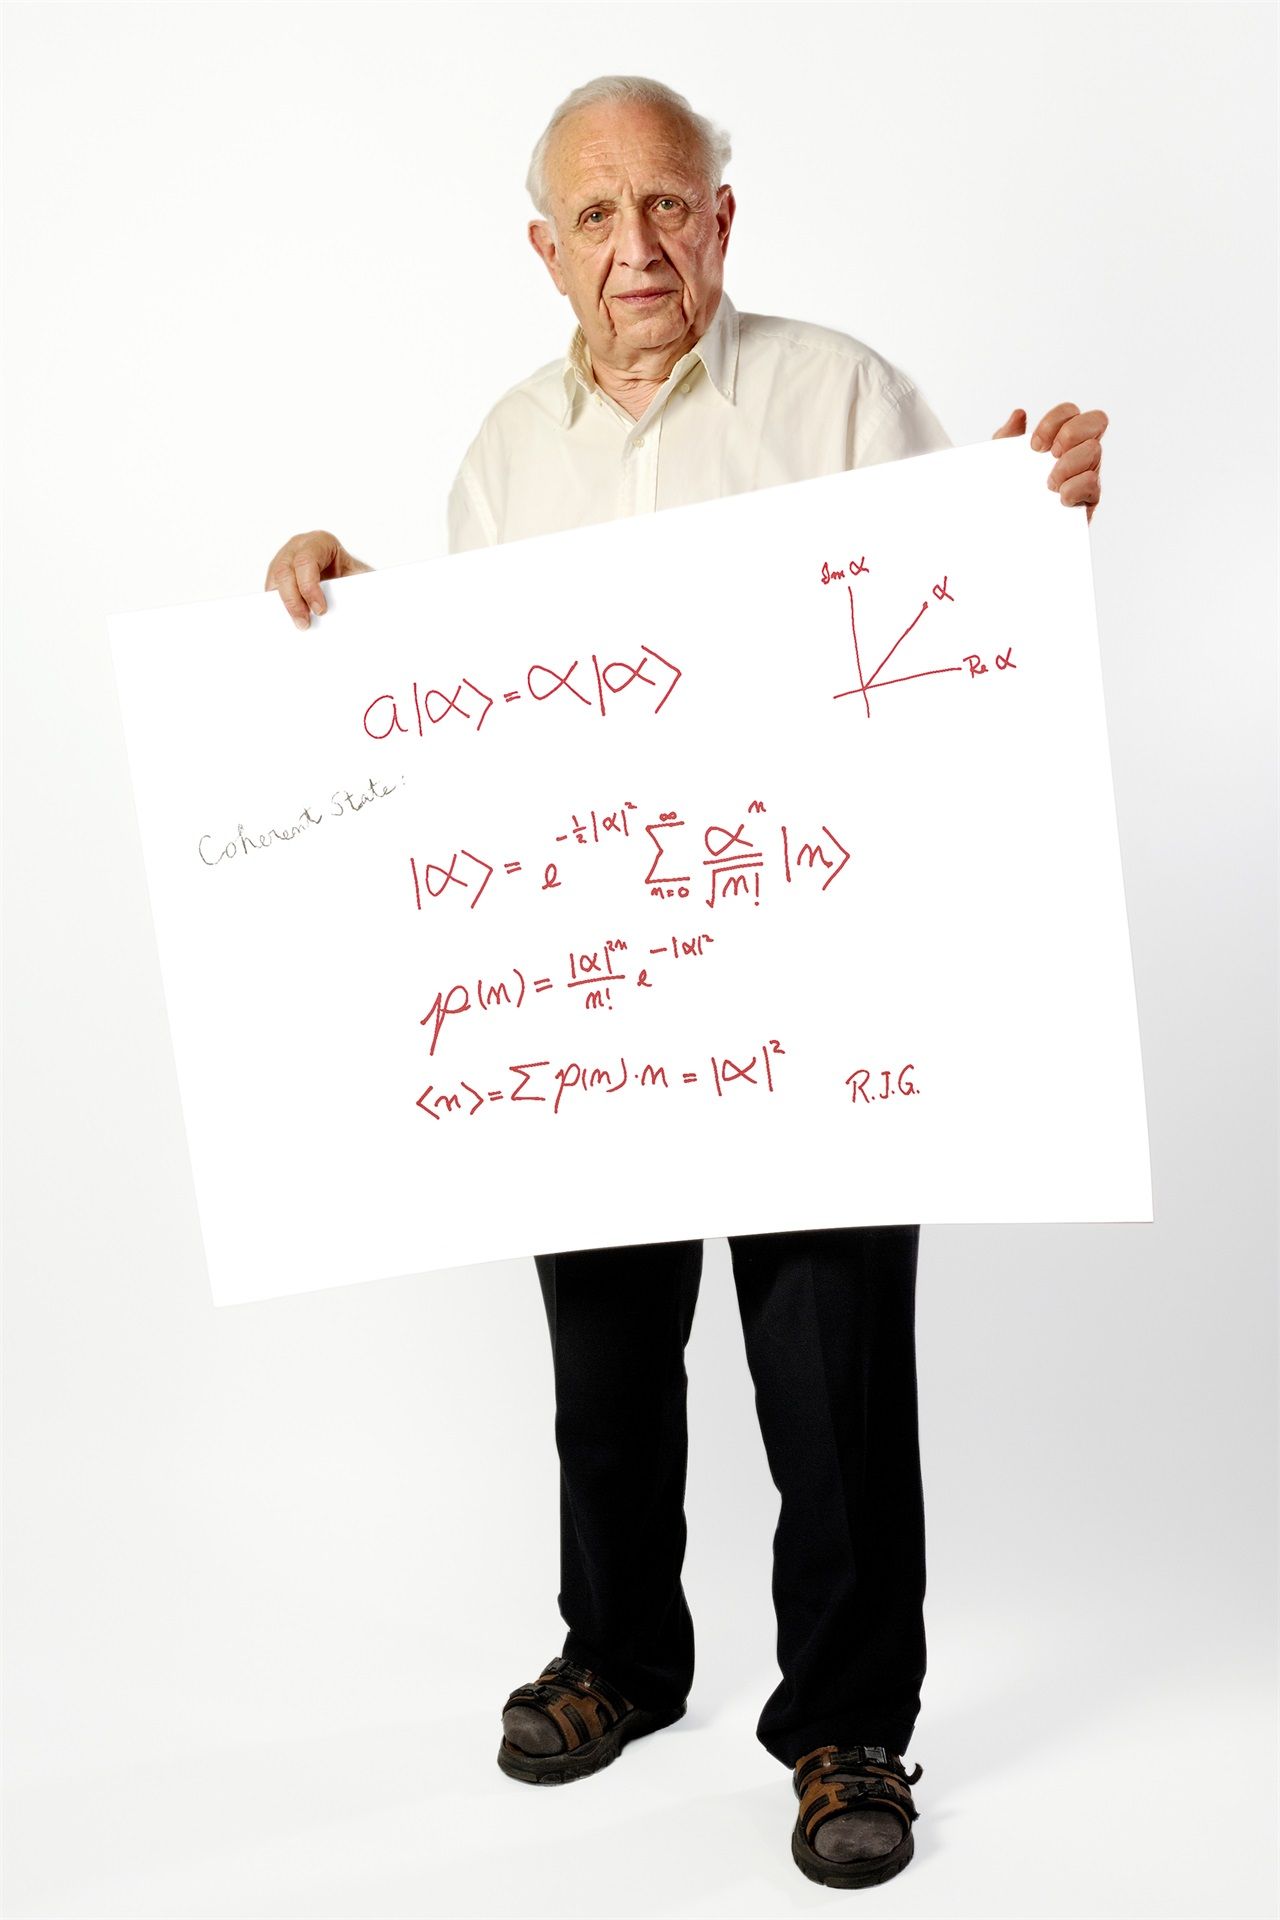 a|α⟩=α|α⟩
Im α
α
Re α
Coherent State:
|α⟩ = e^{-\frac{1}{2}|α|^2} \sum_{n=0}^{∞} \frac{α^n}{\sqrt{n!}} |n⟩
p(n) = \frac{|α|^{2n}}{n!} e^{-|α|^2}
⟨n⟩ = ∑ p(n)·n = |α|^2
R.J.G.